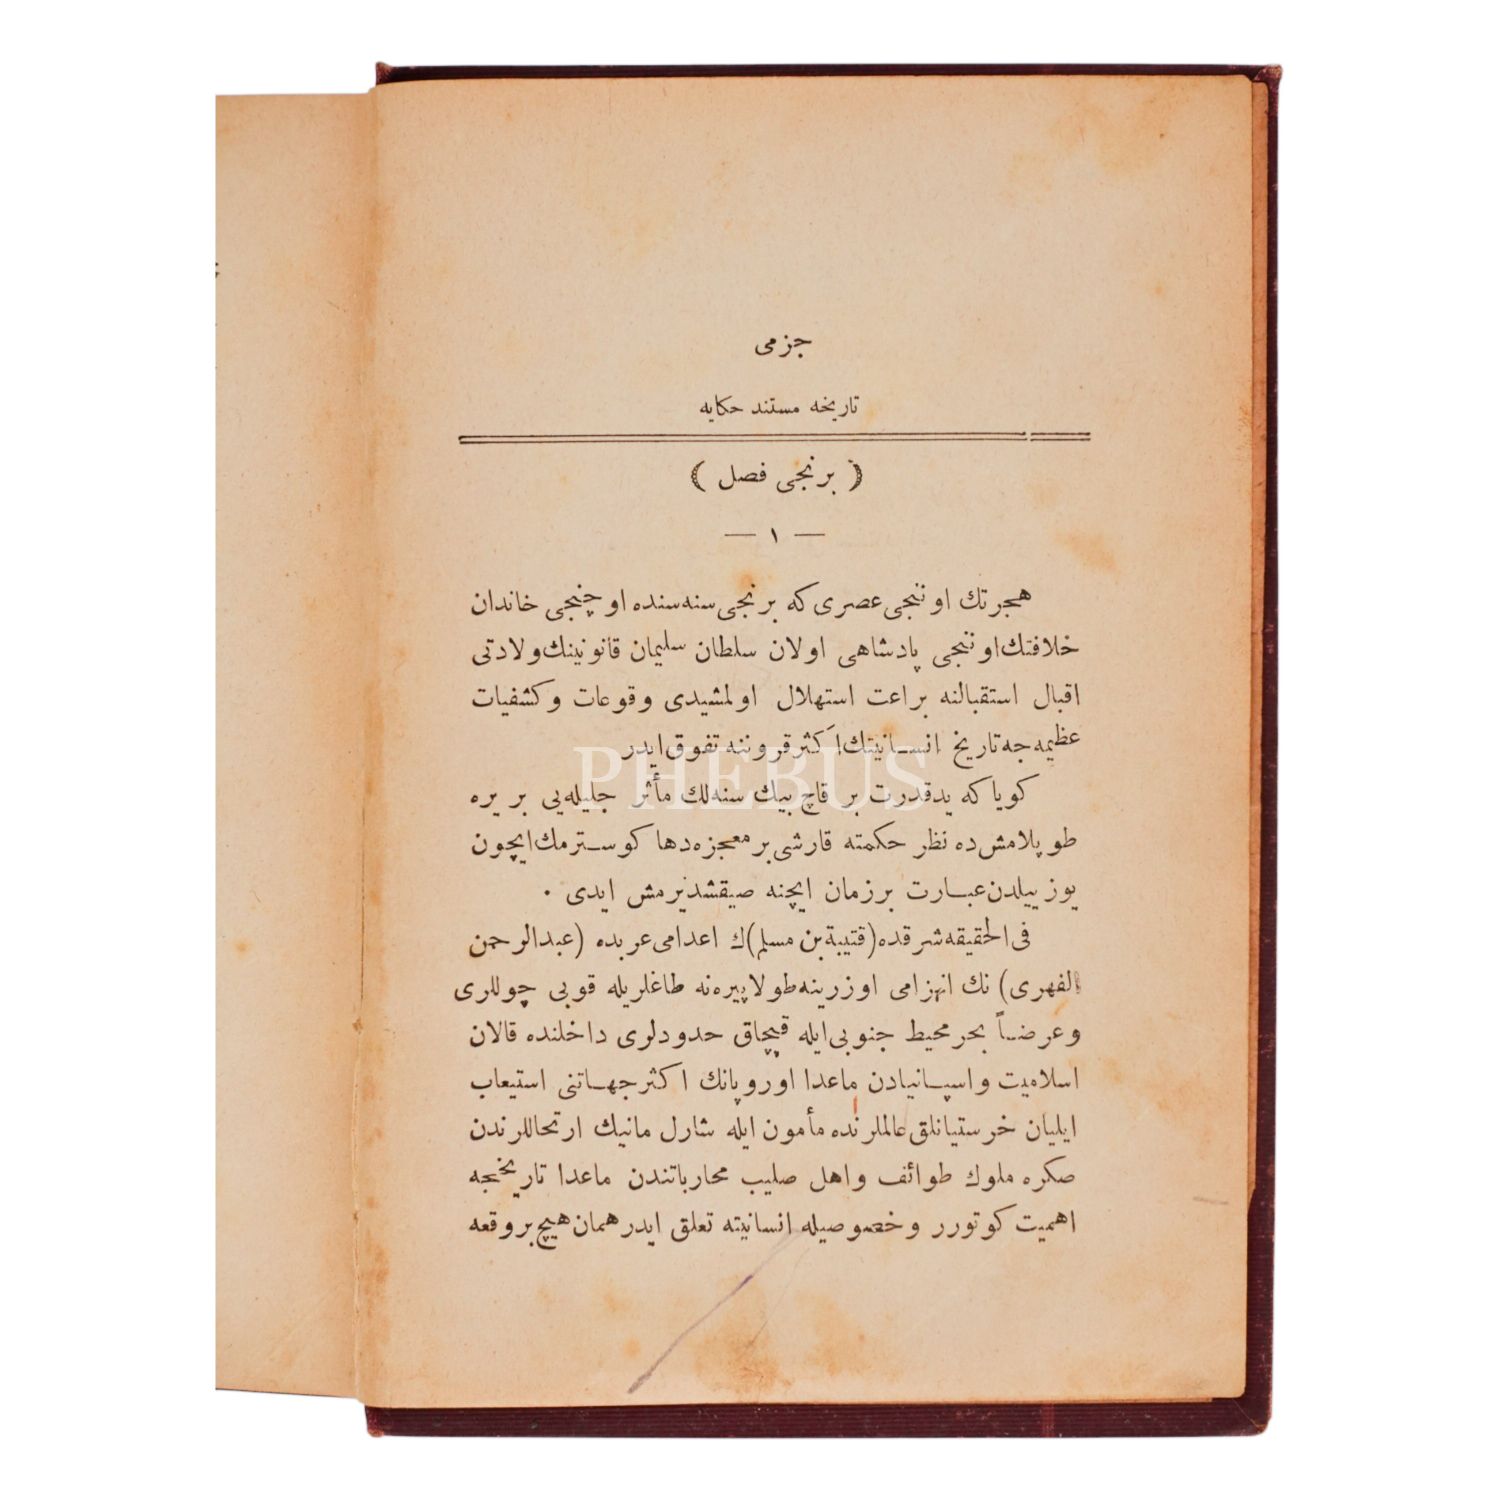 جزمی
تاریخه مستند حکایه
( برنجی فصل )
— ١ —
هجرتك اوننجی عصری که برنجی سنه‌سنده اوچنجی خاندان
خلافتك اوننجی پادشاهی اولان سلطان سلیمان قانونینك ولادتی
اقبال استقبالنه براعت استهلال اولمشیدی وقوعات وکشفیات
عظیمه‌جه تاریخ انسانیتك اَکثر قروننه تفوق ایدر
کویا که یدقدرت بر قاچ بیك سنه‌لك مأثر جلیله‌یی بر یره
طوپلامش‌ده نظر حکمته قارشی بر معجزه‌دها کوسترمك ایچون
یوز ییلدن عبارت برزمان ایچنه صیقشدیرمش ایدی .
فی‌الحقیقه شرقده (قتیبة بن مسلم)ك اعدامی عربده (عبدالرحمن
الفهری) نك انهزامی اوزرینه طولاپیره‌نه طاغلریله قوبی چوللری
وعرضاً بحر محیط جنوبی ایله قپچاق حدودلری داخلنده قالان
اسلامیت واسپانیادن ماعدا اوروپانك اکثر جهاتنی استیعاب
ایلیان خرستیانلق عالملرنده مأمون ایله شارل مانیك ارتحاللرندن
صکره ملوك طوائف واهل صلیب محارباتندن ماعدا تاریخجه
اهمیت کوتورر وخصوصیله انسانیته تعلق ایدر همان هیچ بروقعه
PHEBUS